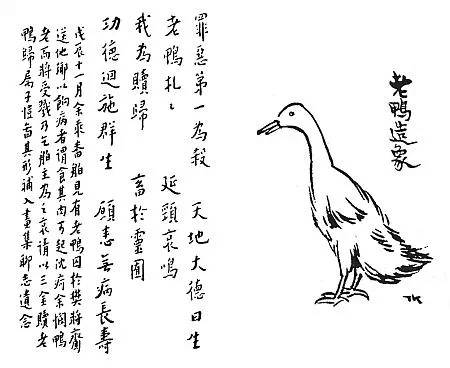 老鴨造象
TK
罪惡第一為殺 天地大德曰生
老鴨札〻 延頸哀鳴
我為贖歸 畜於靈囿
功德迴施群生 願悉無病長壽
戊辰十一月余乘番舶見有老鴨囚於樊將齎
送他鄉以餉病者謂食其肉可起沈疴余憫鴨
老而將受戮乃乞舶主為之哀請以三金贖老
鴨歸屬子愷啚其形補入畫集聊志遺念